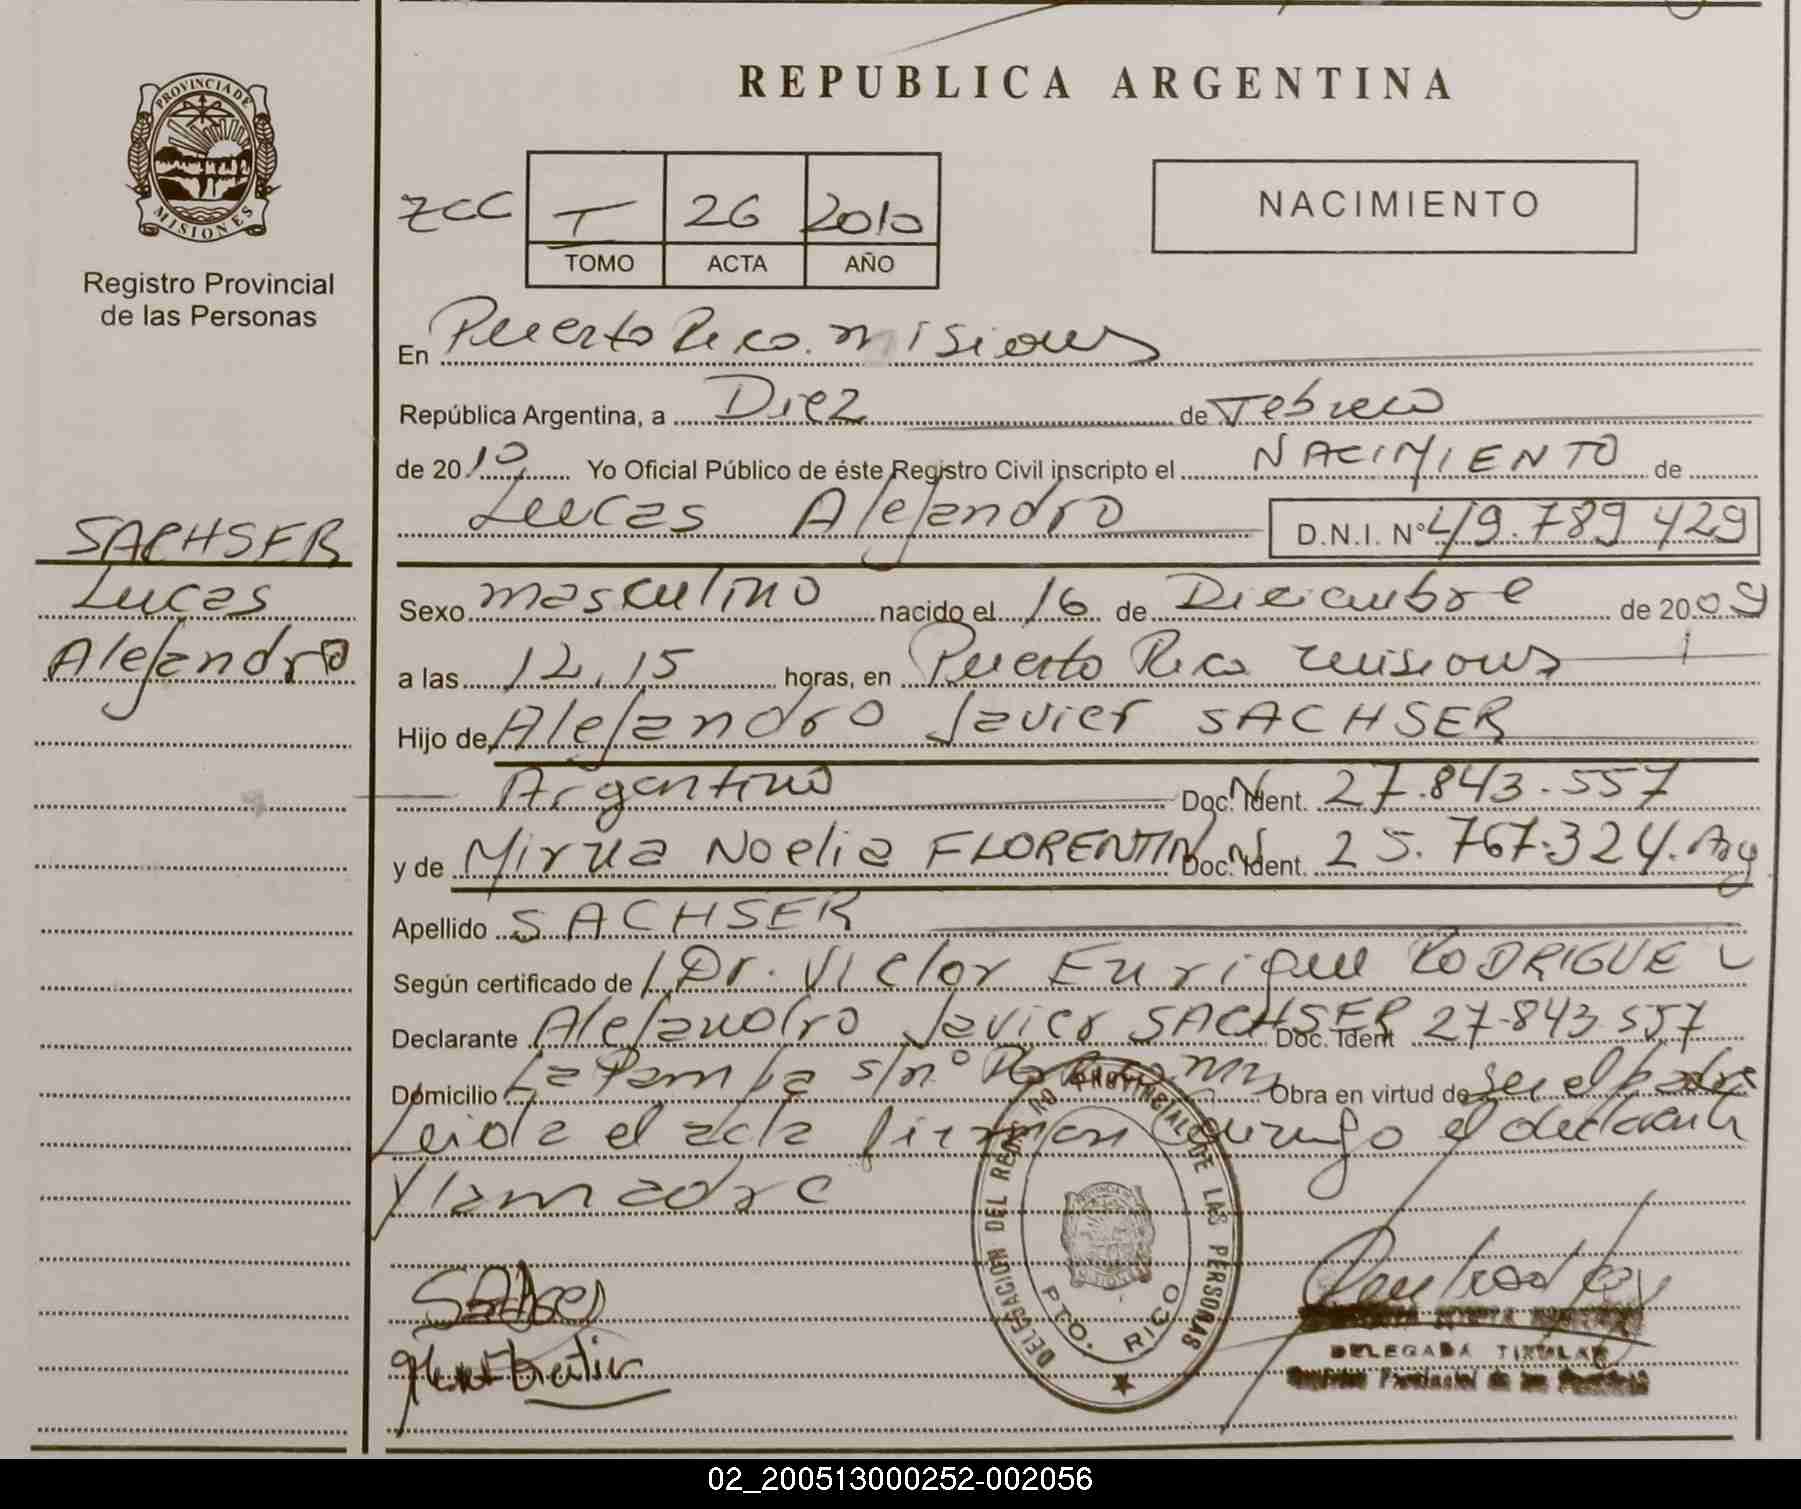 REPUBLICA ARGENTINA
PROVINCIA DE
MISIONES
Registro Provincial
de las Personas
ZCC T 26 2010
TOMO ACTA AÑO
NACIMIENTO
En Puerto Rico. misiones
República Argentina, a Diez de Febrero
de 2010 Yo Oficial Público de éste Registro Civil inscripto el NACIMIENTO de
Lucas Alejandro D.N.I. Nº 49.789 429
SACHSER
Lucas
Alejandro
Sexo masculino nacido el 16 de Diciembre de 2009
a las 12,15 horas, en Puerto Rico misiones
Hijo de Alejandro Javier SACHSER
Argentino Doc. Ident. Nº 27.843.557
y de Mirna Noelia FLORENTIN Doc. Ident. Nº 25.767.324. Arg
Apellido SACHSER
Según certificado de Dr. Victor Enrique RODRIGUEZ
Declarante Alejandro Javier SACHSER Doc. Ident 27.843.557
Domicilio La Pampa s/nº Obra en virtud de ser el padre
Leida el acta firman conmigo el declarante
y la madre
DELEGACION DEL REGISTRO PROVINCIAL DE LAS PERSONAS
PTO. RICO
DELEGADA TITULAR
02_200513000252-002056